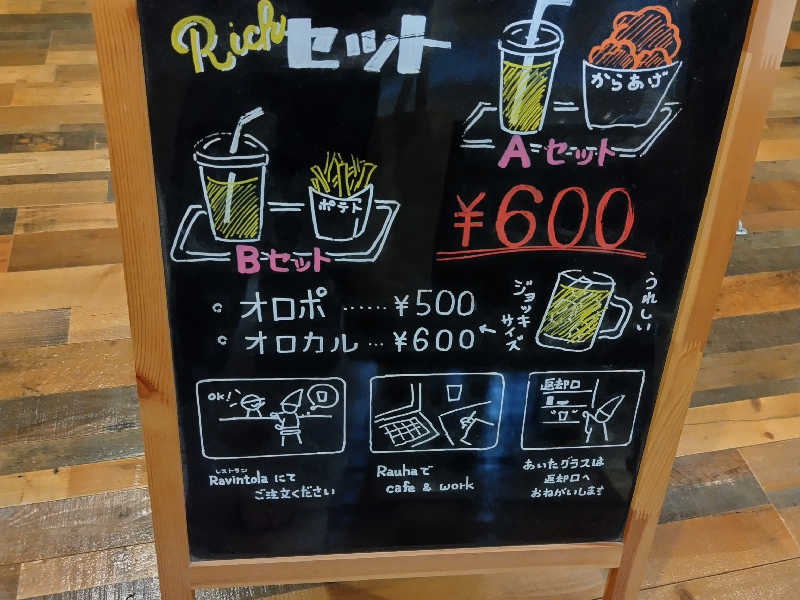 Rich セット
からあげ
Aセット
ポテト
Bセット
¥600
オロポ ‥‥‥ ¥500
オロカル ‥ ¥600
ジョッキ
サイズ
うれしい
OK!
レストラン
Ravintola にて
ご注文ください
Rauhaで
cafe & work
返却口
あいたグラスは
返却口へ
おねがいします